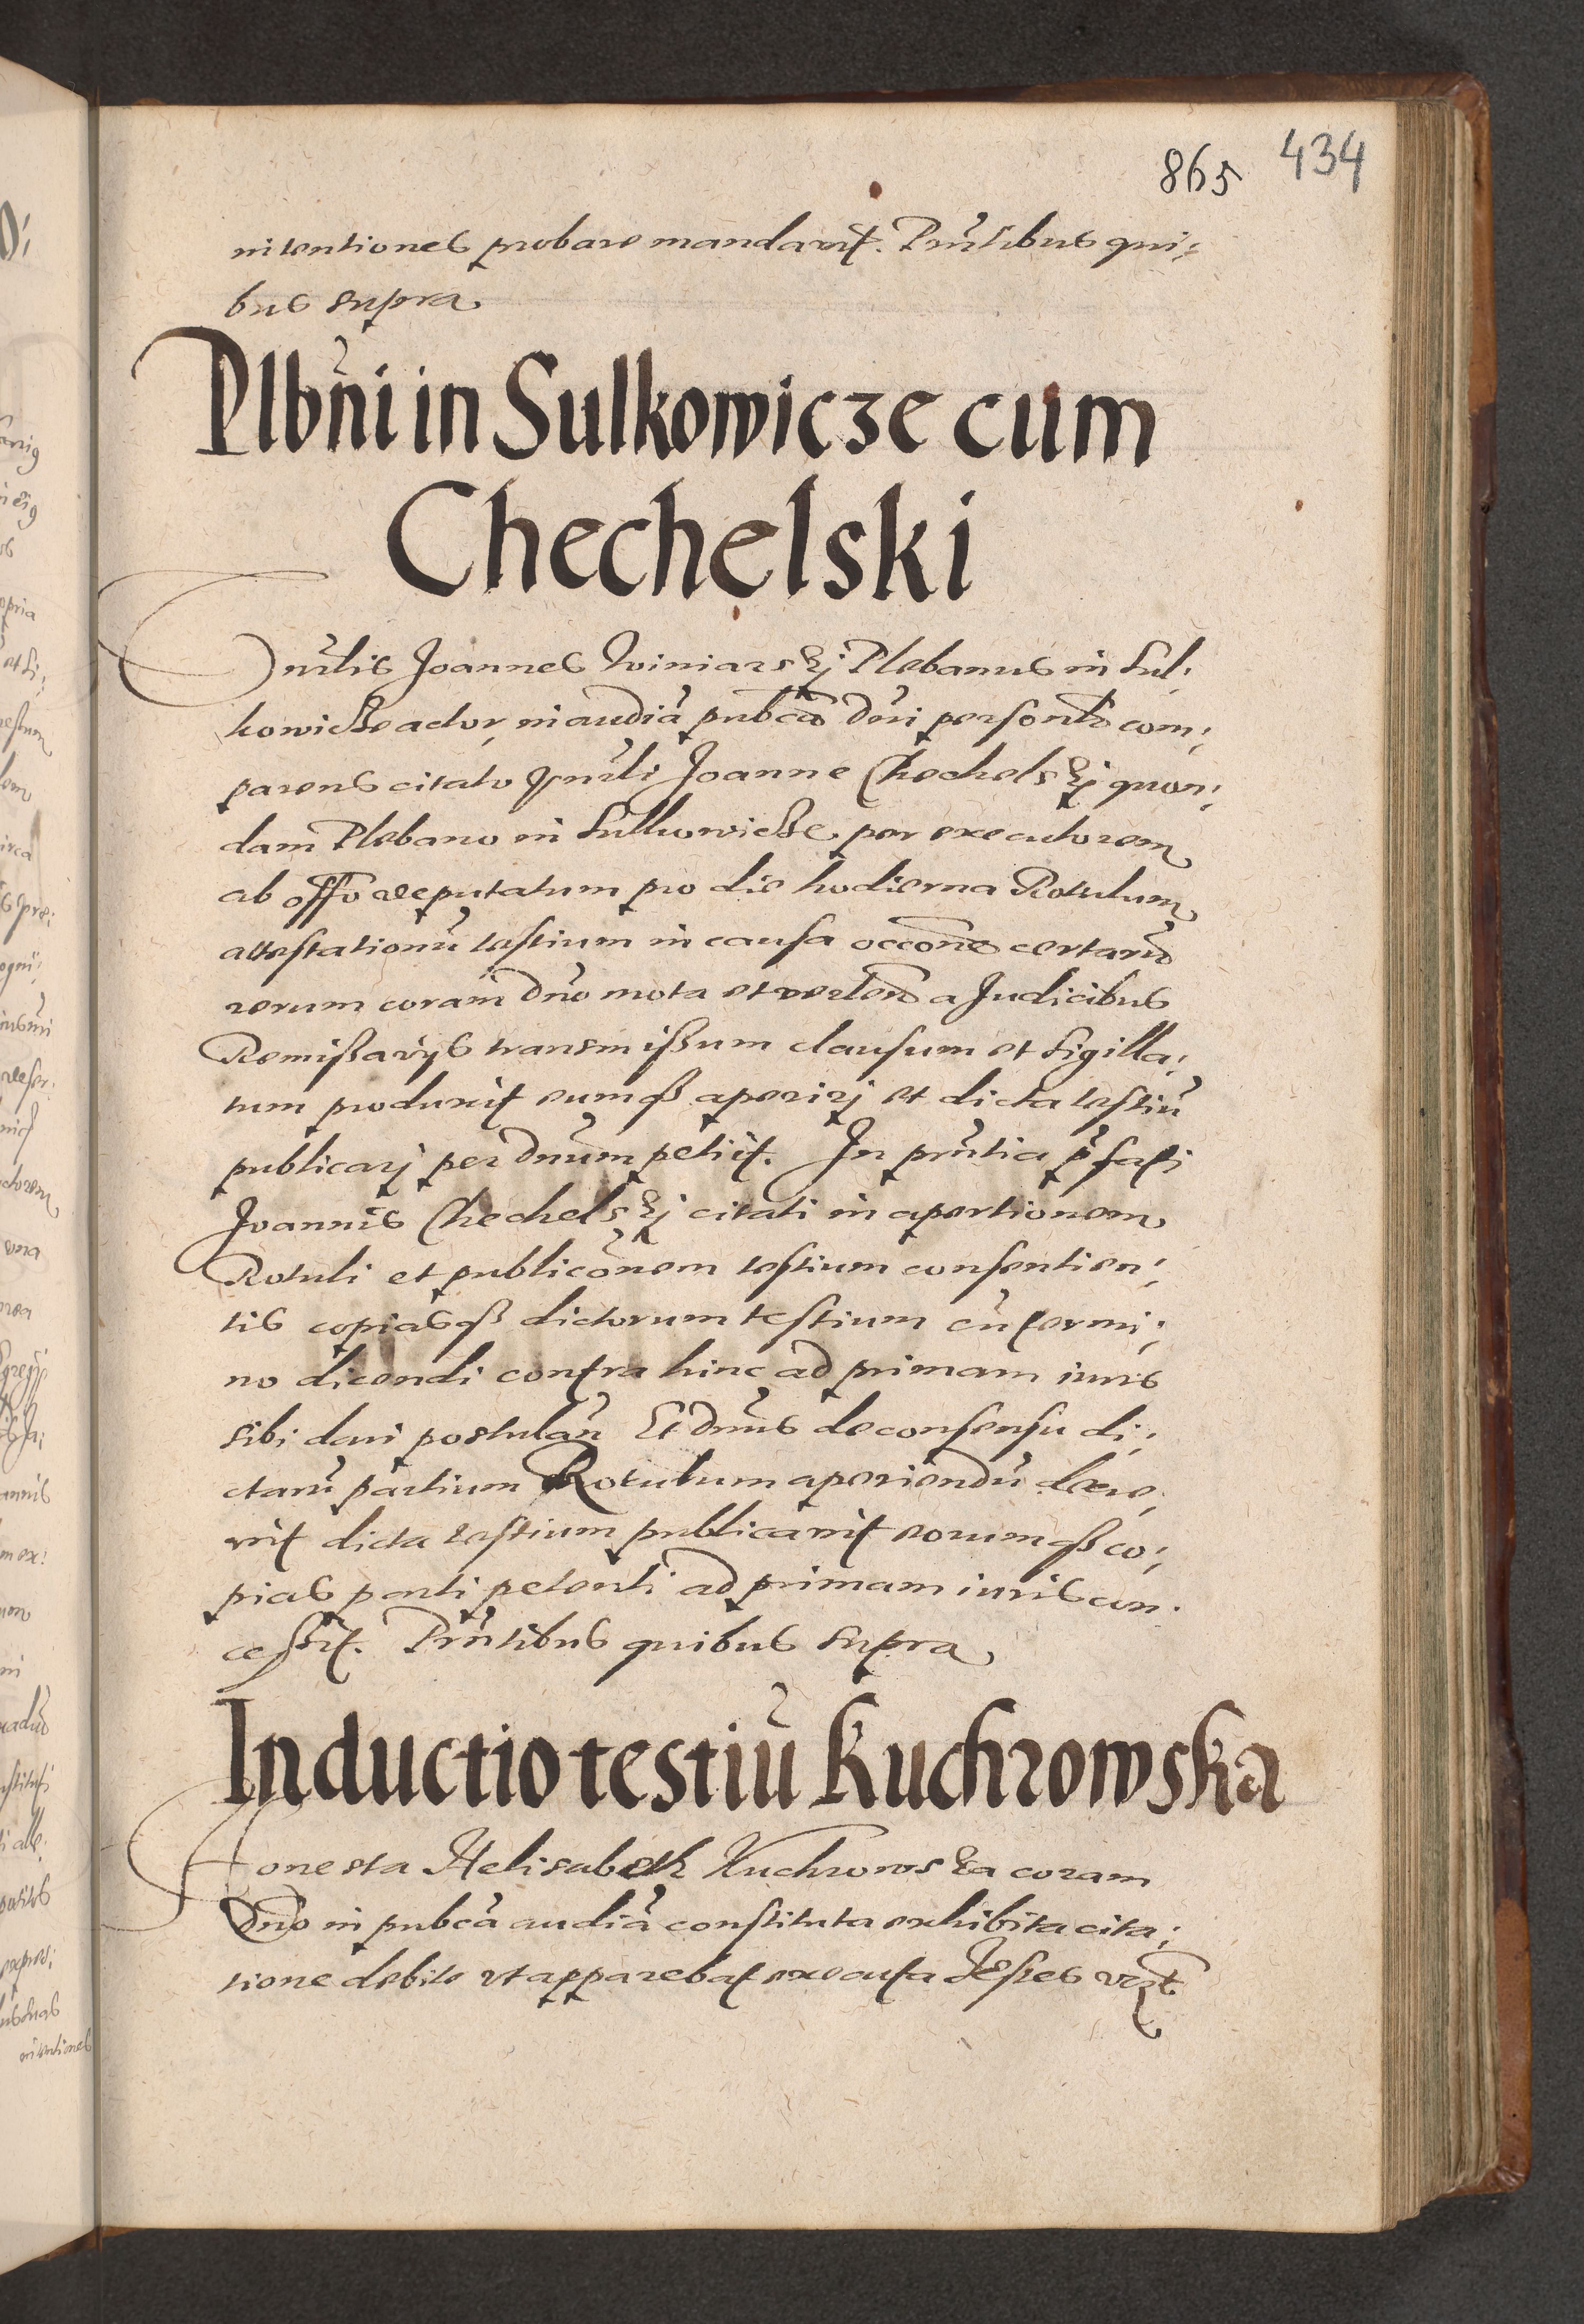 865 434
intentiones probare mandavit. Pñtibus qui:
bus supra
Plbñi in Sulkowicze cum
Chechelski
Dnrlis Joannes Winiarskj Plebanus in Sul:
kowicze actor, in audiã pubca dñi personlr com:
parens citato Hnrli Joanne Chechelskj quon:
dam Plebano in Sulkowicze per executorem
ab offo deputatum pro die hodierna Rotulum
attestationũ testium in causa occone certarũ
rerum coram dño mota et verten a Judicibus
Remissarijs transmissum clausum et sigilla:
tum produxit eumqß aperirj et dicta testiũ
publicarj per dnũm petijt. In pñtia pfati
Joannis Chechelskj citati in apertionem
Rotuli et publicõnem testium consentien:
tis copiasqß dictorum testium cũ termi:
no dicendi contra hinc ad primam iuris
sibi dari postulañ Et dnũs de consensu di:
ctarũ partium Rotulum aperiendũ decre:
vit dicta testium publicavit eorumqß co:
pias parti petenti ad primam iuris con:
cessit. Pñtibus quibus supra
Inductio testiũ Kuchrowska
Honesta Helisabeth Kuchrowska coram
Dño in pubcã audiã constituta exhibita cita:
tione debite vt apparebat executa Testes